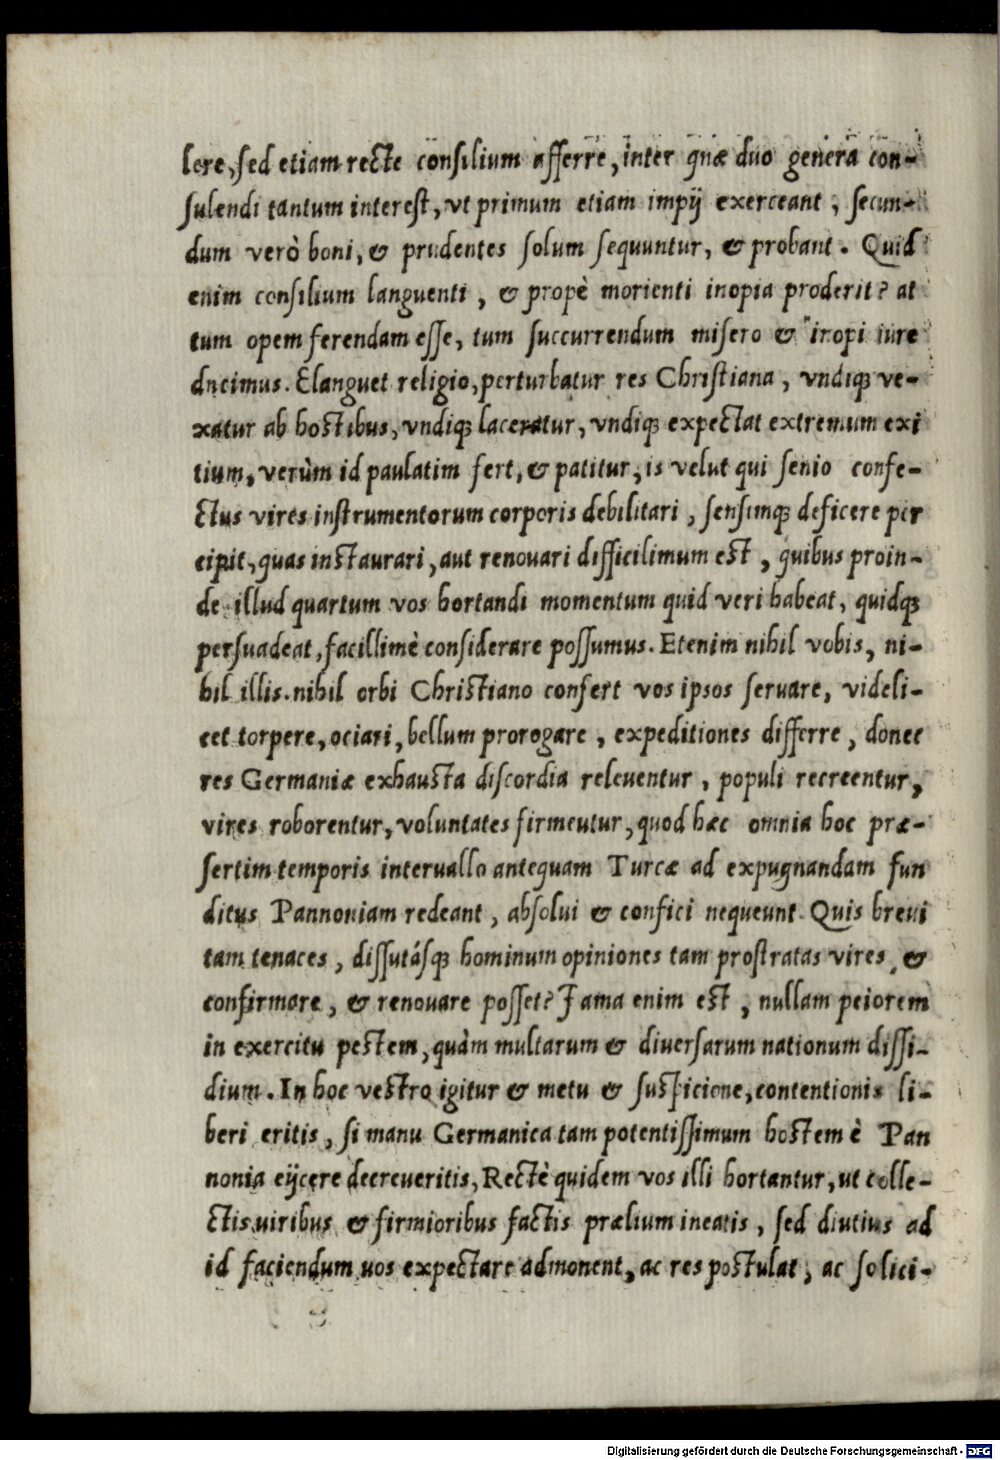 lere, sed etiam recte consilium afferre, inter quæ duo genera con-
sulendi tantum interest, vt primum etiam impij exerceant, secun-
dum verò boni, & prudentes solum sequuntur, & probant. Quid
enim consilium languenti, & propè morienti inopia proderit? at
tum opem ferendam esse, tum succurrendum misero & inopi iure
ducimus. Elanguet religio, perturbatur res Christiana, vndiqꝫ ve-
xatur ab hostibus, vndiqꝫ laceratur, vndiqꝫ expectat extremum exi
tium, verùm id paulatim fert, & patitur, is velut qui senio confe-
ctus vires instrumentorum corporis debilitari, sensimqꝫ deficere per
cipit, quas instaurari, aut renouari difficilimum est, quibus proin-
de illud quartum vos hortandi momentum quid veri habeat, quidqꝫ
persuadeat, facillimè considerare possumus. Etenim nihil vobis, ni-
hil illis. nihil orbi Christiano confert vos ipsos seruare, videli-
cet torpere, ociari, bellum prorogare, expeditiones differre, donec
res Germaniæ exhausta discordia releuentur, populi recreentur,
vires roborentur, voluntates firmeutur, quod hæc omnia hoc præ-
sertim temporis interuallo antequam Turcæ ad expugnandam fun
ditus Pannoniam redeant, absolui & confici nequeunt. Quis breui
tam tenaces, dissutásqꝫ hominum opiniones tam prostratas vires, &
confirmare, & renouare posset? Fama enim est, nullam peiorem
in exercitu pestem, quàm multarum & diuersarum nationum dissi-
dium. In hoc vestro igitur & metu & suspicione, contentionis li-
beri eritis, si manu Germanica tam potentissimum hostem è Pan
nonia eijcere decreueritis, Rectè quidem vos illi hortantur, ut colle-
ctis uiribus & firmioribus factis prælium ineatis, sed diutius ad
id faciendum uos expectare admonent, ac res postulat, ac solici-
Digitalisierung gefördert durch die Deutsche Forschungsgemeinschaft - DFG